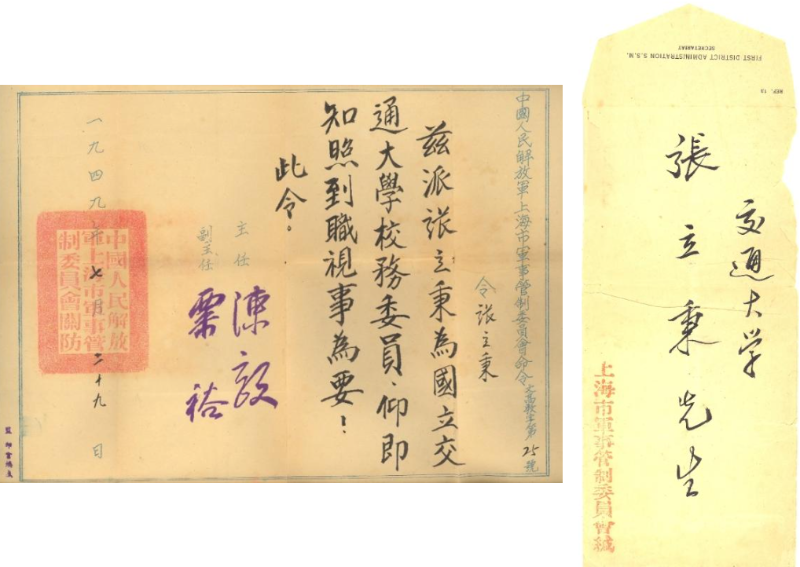 中國人民解放軍上海市軍事管制委員會命令
第25號
令張立秉
茲派張立秉為國立交
通大學校務委員、仰即
知照到職視事為要！
此令。
主任 陳毅
副主任 粟裕
一九四九年七月二十九日
中國人民解放
軍上海市軍事管
制委員會關防
FIRST DISTRICT ADMINISTRATION S.S.M.
SECRETARIAT
REF. 1A
交通大学
張立秉先生
上海市軍事管制委員會緘